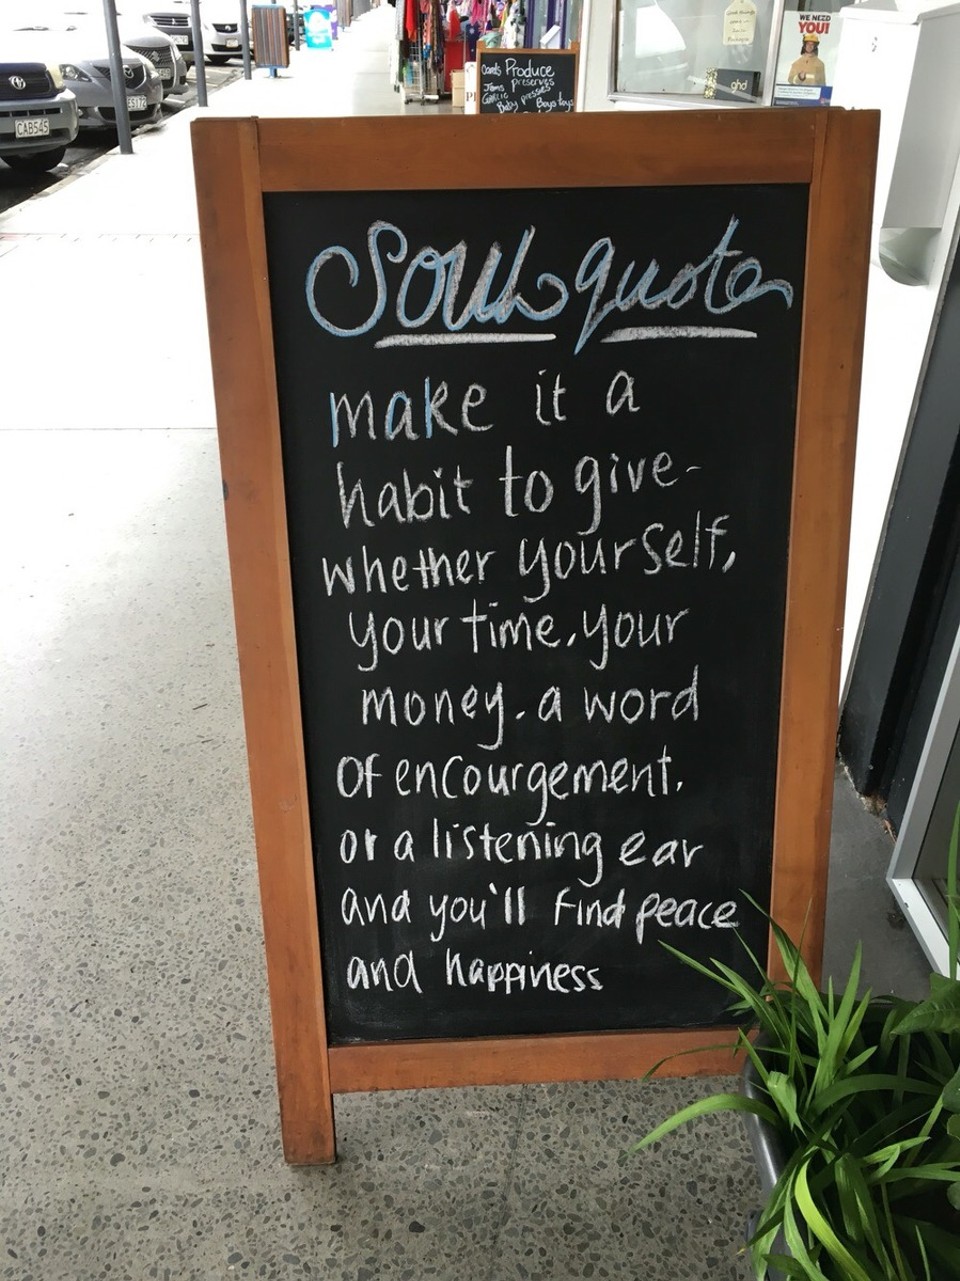 WE NEED
YOU!
Cards Produce
Jams preserves
Boys toys
ghd
CAB545
Soul quote
make it a
habit to give-
whether yourself,
your time, your
money. a word
of encourgement,
or a listening ear
and you'll find peace
and happiness